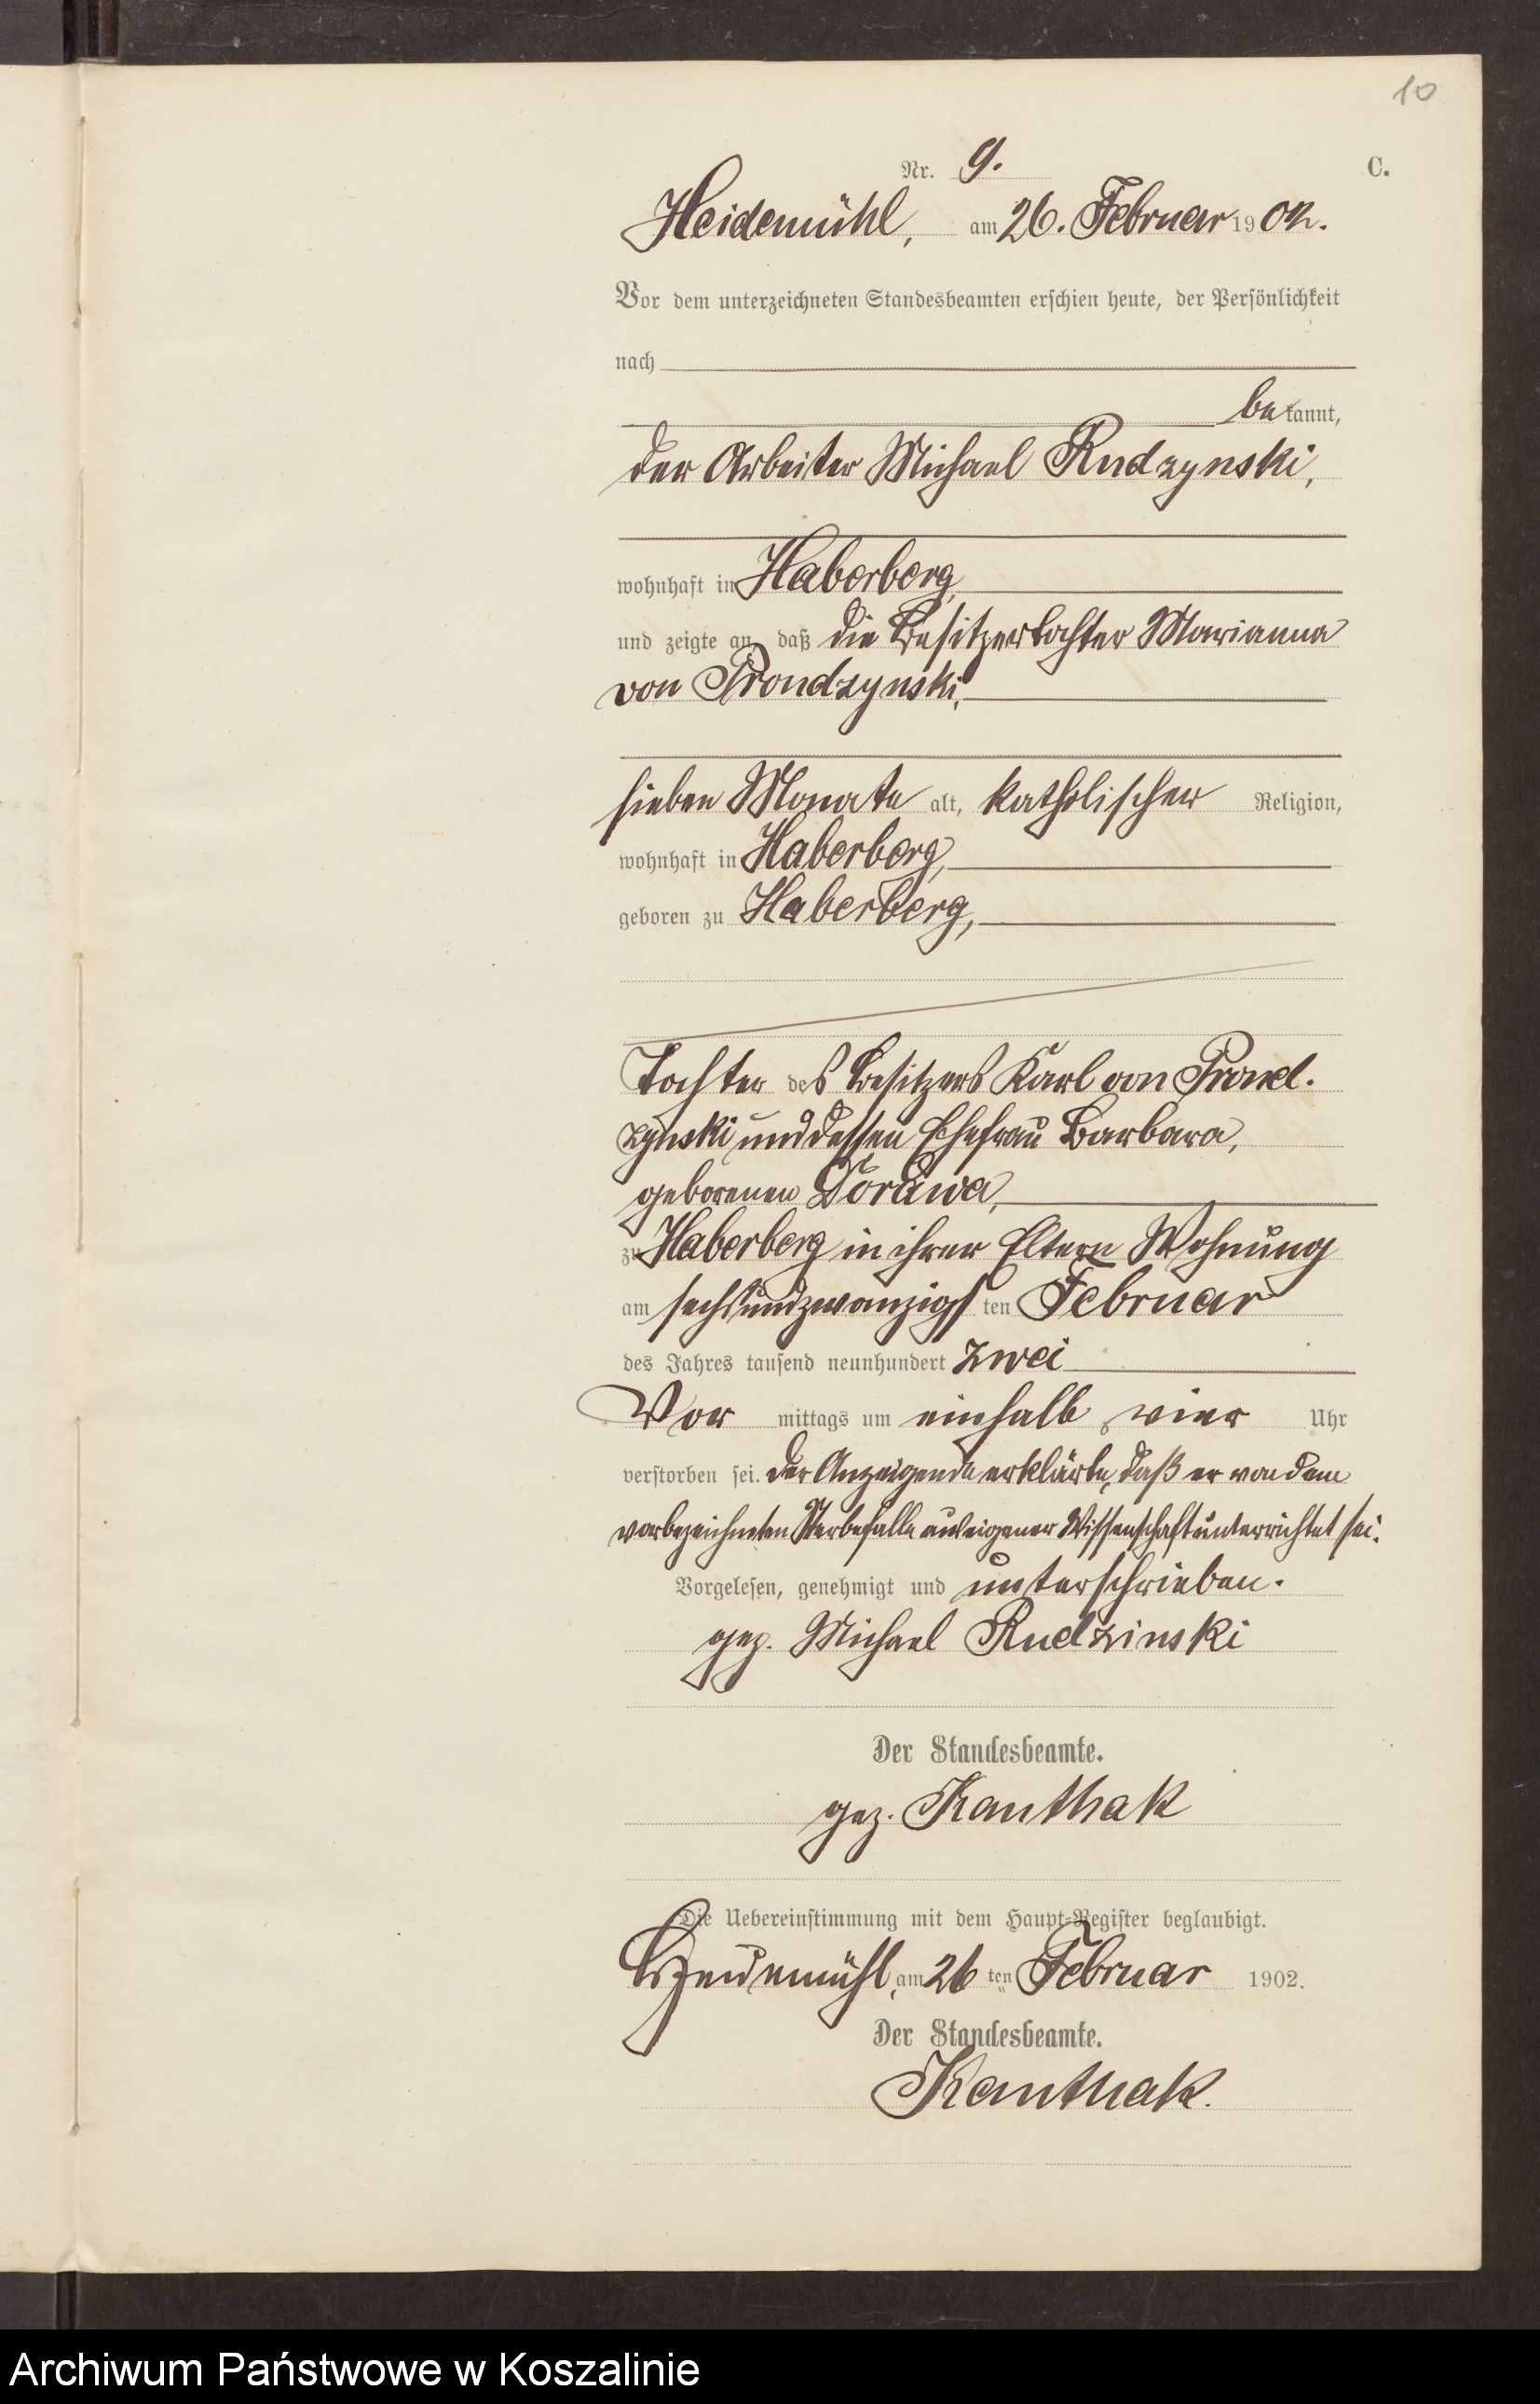 10
Nr. 9. C.
Heidemühl, am 26. Februar 1902.
Vor dem unterzeichneten Standesbeamten erschien heute, der Persönlichkeit
nach
bekannt,
der Arbeiter Michael Rudzynski,
wohnhaft in Haberberg,
und zeigte an, daß die Besitzertochter Marianna
von Prondzynski,
sieben Monate alt, katholischer Religion,
wohnhaft in Haberberg,
geboren zu Haberberg,
Tochter des Besitzers Karl von Prond-
zynski und dessen Ehefrau Barbara,
geborenen Dorawa,
zu Haberberg in ihrer Eltern Wohnung
am sechsundzwanzigsten Februar
des Jahres tausend neunhundert zwei
Vormittags um einhalb vier Uhr
verstorben sei. Der Anzeigende erklärte, daß er von dem
vorbezeichneten Sterbefalle aus eigener Wissenschaft unterrichtet sei.
Vorgelesen, genehmigt und unterschrieben.
gez. Michael Rudzinski
Der Standesbeamte.
gez. Kanthak
Die Uebereinstimmung mit dem Haupt-Register beglaubigt.
Heidemühl, am 26 ten Februar 1902.
Der Standesbeamte.
Kanthak.
Archiwum Państwowe w Koszalinie